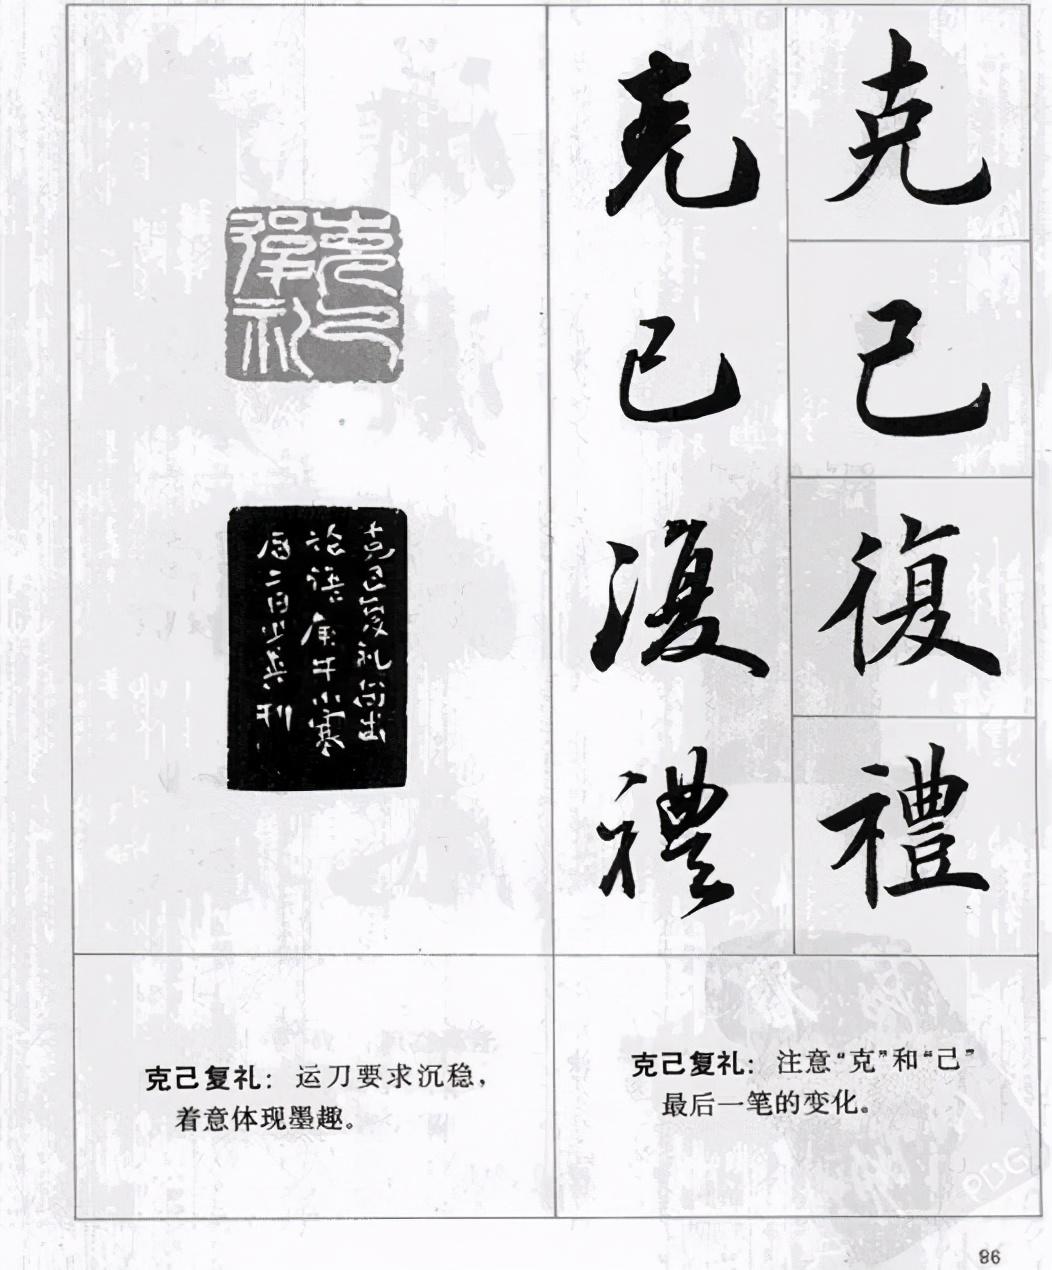 克
己
復
禮
克
己
復
禮
復克
礼己
克己复礼尚出
论语 庚午小寒
克己复礼：注意“克”和“己”
最后一笔的变化。
克己复礼：运刀要求沉稳，
着意体现墨趣。
86
PDG